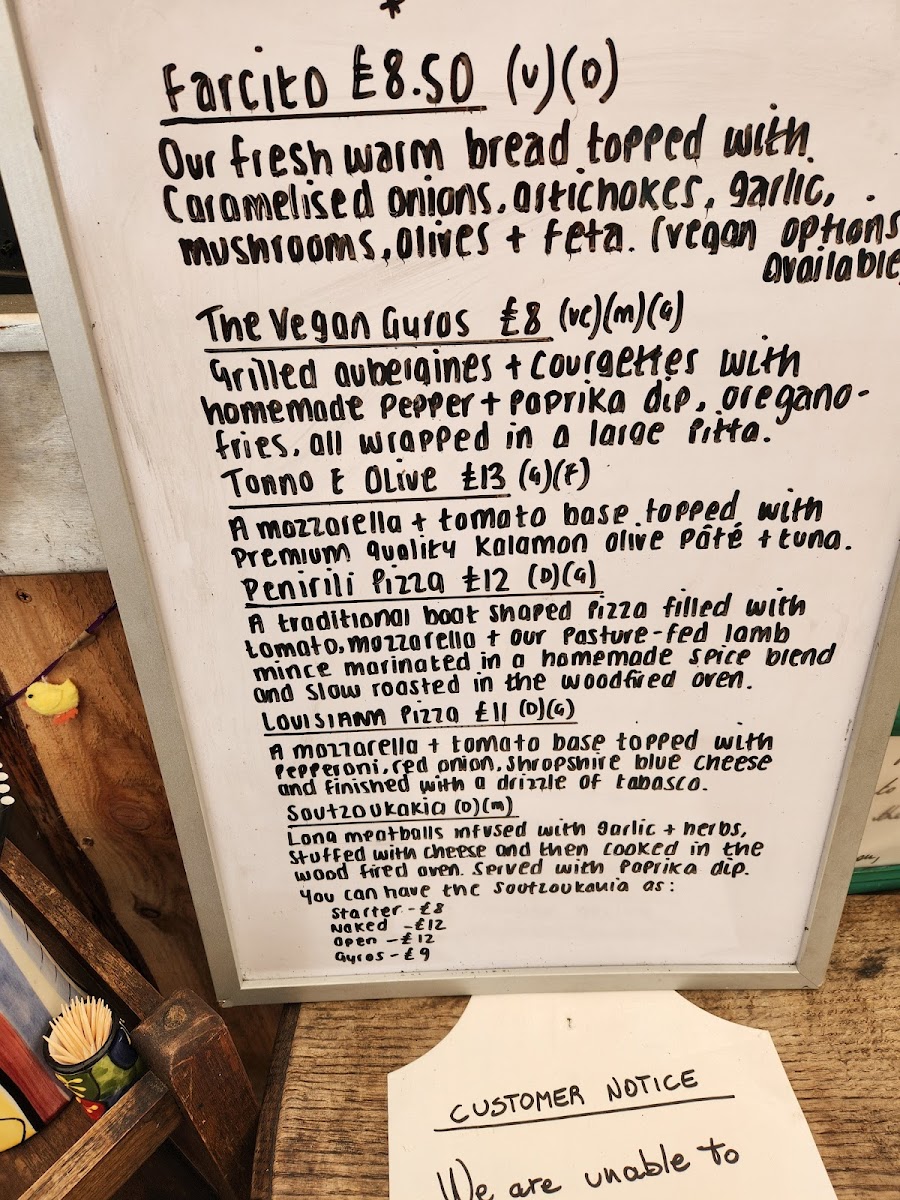 *
Farcito £8.50 (V)(D)
Our fresh warm bread topped with
Caramelised onions, artichokes, garlic,
mushrooms, olives + feta. (vegan options
available
The Vegan Guros £8 (ve)(m)(G)
Grilled aubergines + courgettes with
homemade pepper + paprika dip, oregano-
fries, all wrapped in a large Pitta.
Tonno E Olive £13 (G)(F)
A mozzarella + tomato base topped with
Premium quality Kalamon olive Pâté + tuna.
Penirili Pizza £12 (D)(G)
A traditional boat shaped Pizza filled with
tomato, mozzarella + our Pasture-fed lamb
mince marinated in a homemade spice blend
and slow roasted in the woodfired oven.
Louisiann Pizza £11 (D)(G)
A mozzarella + tomato base topped with
Pepperoni, red onion, Shropshire blue cheese
and finished with a drizzle of tabasco.
Soutzoukakia (D)(m)
Long meatballs infused with garlic + herbs,
Stuffed with cheese and then cooked in the
wood fired oven. Served with Paprika dip.
You can have the Soutzoukauia as:
Starter - £8
Naked - £12
Open - £12
Gyros - £9
CUSTOMER NOTICE
We are unable to